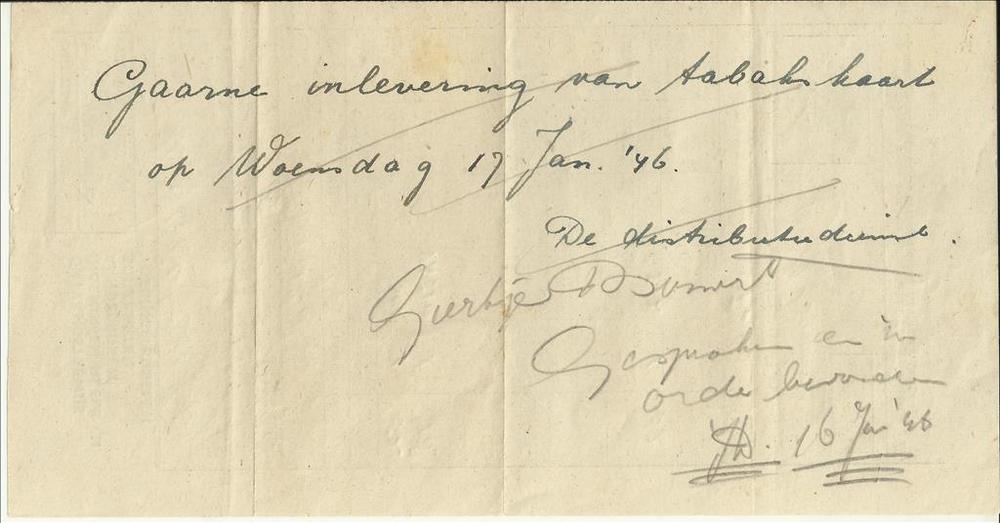 Gaarne inlevering van tabakskaart
op Woensdag 17 Jan. '46.
De distributiedienst.
Geertje
Gesproken en in
orde bevonden
16 Jan '46